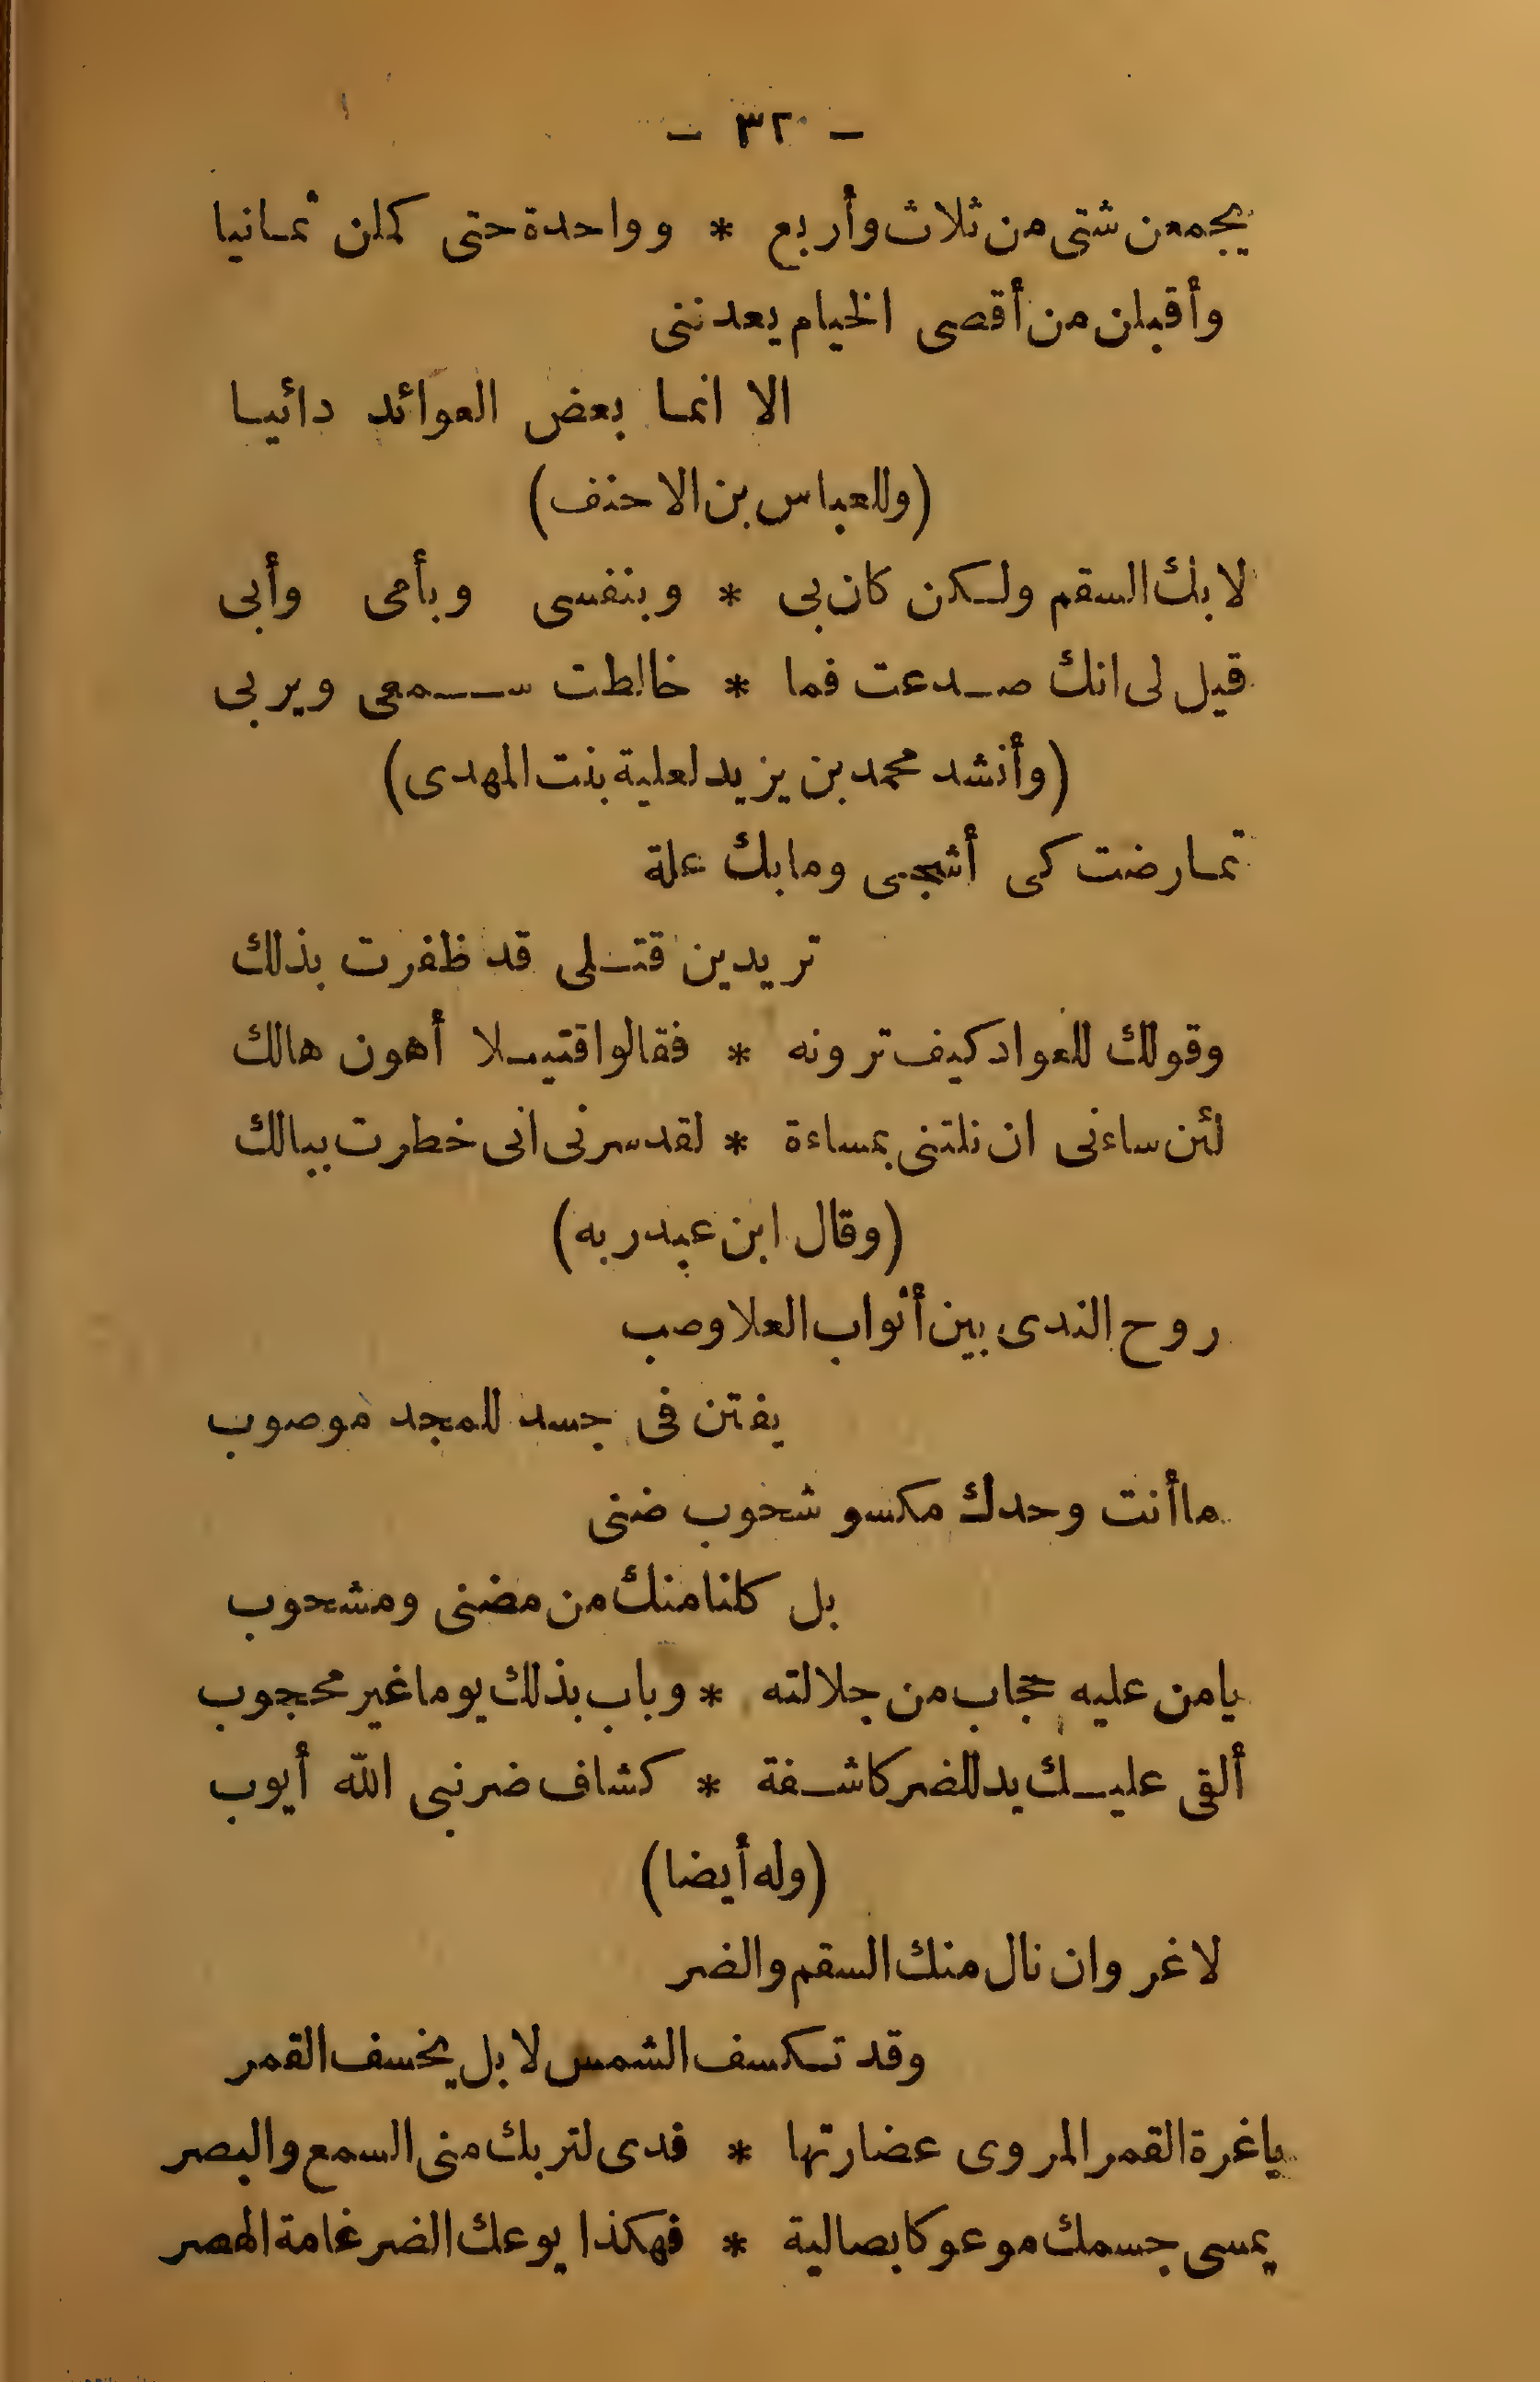 - ٣٢٠ -
يجمعن شتى من ثلاث وأربع * وواحدة حتى كملن ثمانيا
وأقبلن من أقصى الخيام يعدننى
الا انما بعض العوائد دائيا
(وللعباس بن الاحنف)
لا بك السقم ولكن كان بى * وبنفسى وبأمى وأبى
قيل لى انك صدعت فما * خالطت سمعى ويربى
(وأنشد محمد بن يزيد لعلية بنت المهدى)
تمارضت كى أشجى وما بك علة
تريدين قتلى قد ظفرت بذلك
وقولك للعواد كيف ترونه * فقالوا قتيلا أهون هالك
لئن ساءنى ان نلتنى بمساءة * لقد سرنى انى خطرت ببالك
(وقال ابن عبدربه)
روح الندى بين أثواب العلا وصب
يفتن فى جسد للمجد موصوب
ما أنت وحدك مكسو شحوب ضنى
بل كلنا منك من مضنى ومشحوب
يا من عليه حجاب من جلالته * وباب بذلك يوما غير محجوب
ألقى عليك يد للضر كاشفة * كشاف ضر نبى الله أيوب
(وله أيضا)
لا غر وان نال منك السقم والضر
وقد تكسف الشمس لا بل يخسف القمر
يا غرة القمر المروى عضارتها * فدى لتربك منى السمع والبصر
يمسى جسمك موعوكا بصالية * فهكذا يوعك الضرغامة الهصر